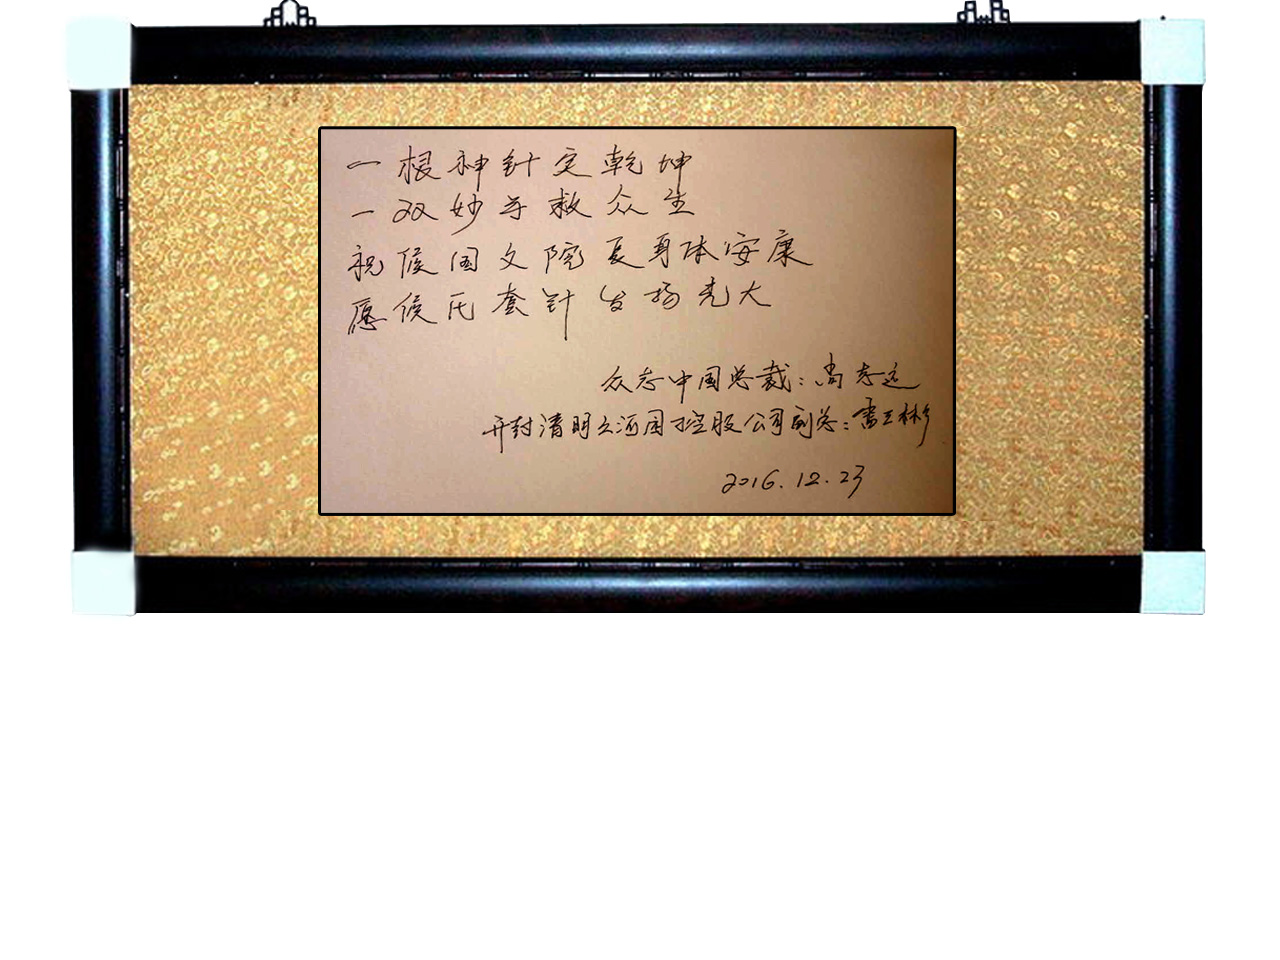 一根神针定乾坤
一双妙手救众生
祝侯国文院长身体安康
愿侯氏套针发扬光大
众志中国总裁：尚志远
开封清明上河园控股公司副总：雷玉彬
2016.12.23